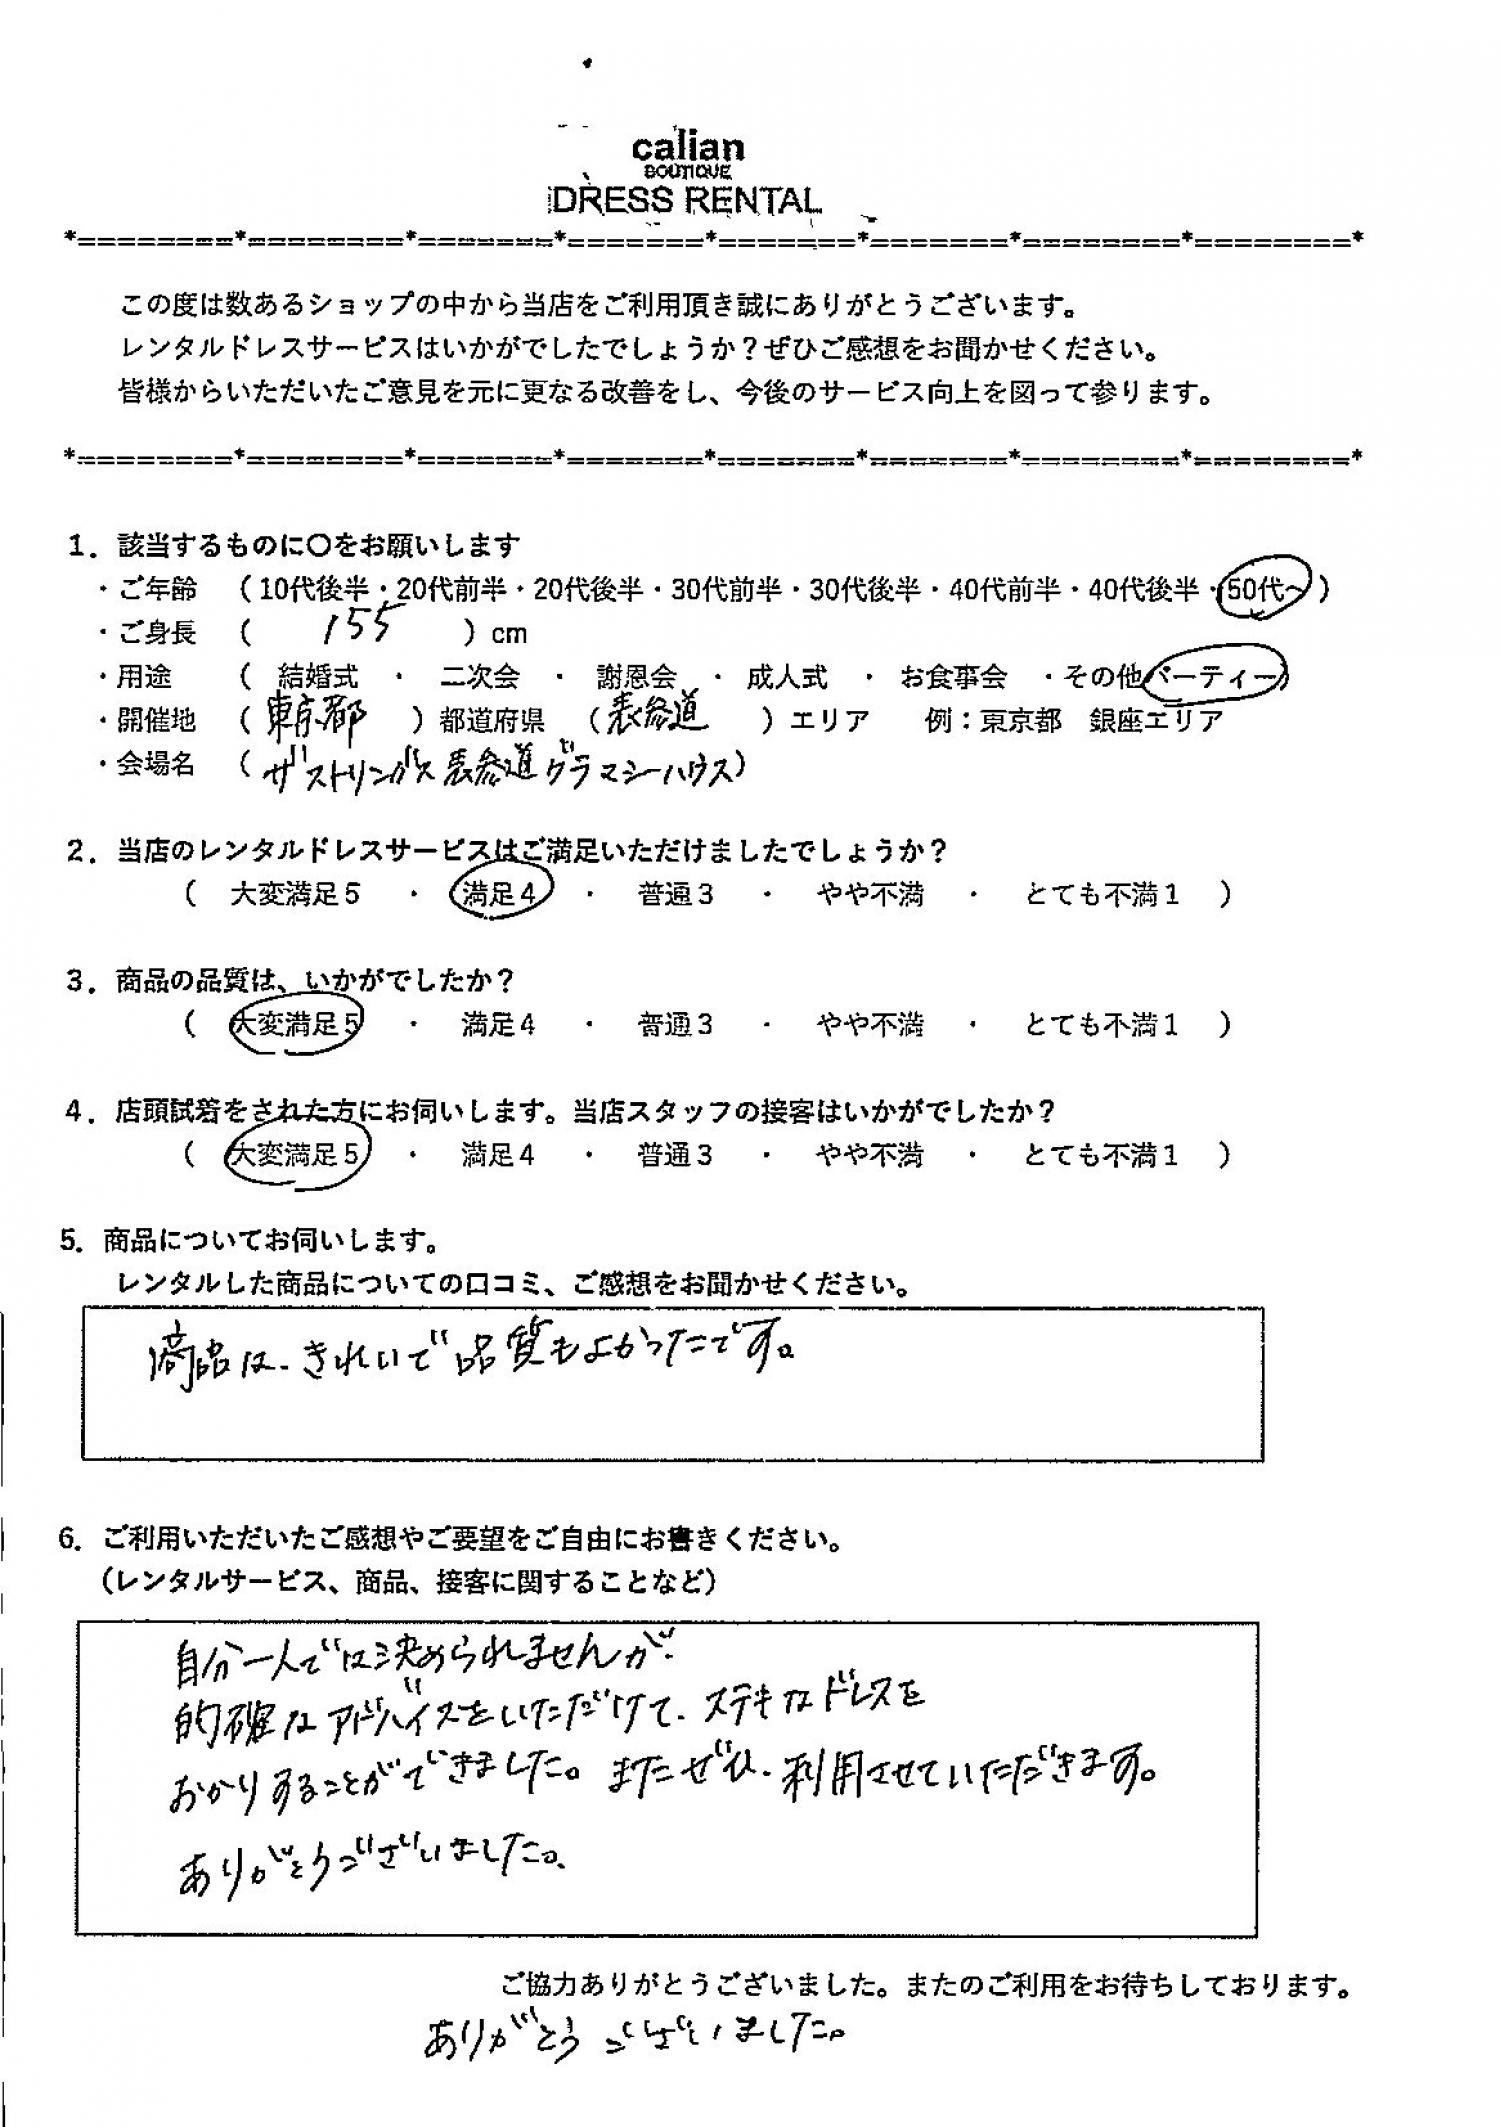 calian
BOUTIQUE
DRESS RENTAL
*========*========*=======*=======*=======*=======*========*========*
この度は数あるショップの中から当店をご利用頂き誠にありがとうございます。
レンタルドレスサービスはいかがでしたでしょうか？ぜひご感想をお聞かせください。
皆様からいただいたご意見を元に更なる改善をし、今後のサービス向上を図って参ります。
*========*========*=======*=======*=======*=======*========*========*
1．該当するものに〇をお願いします
・ご年齢 （ 10代後半・20代前半・20代後半・30代前半・30代後半・40代前半・40代後半・50代～ ）
・ご身長 （ 155 ）cm
・用途 （ 結婚式 ・ 二次会 ・ 謝恩会 ・ 成人式 ・ お食事会 ・その他パーティー）
・開催地 （ 東京都 ）都道府県 （表参道 ）エリア 例：東京都 銀座エリア
・会場名 （ ザストリングス表参道グラマシーハウス）
2．当店のレンタルドレスサービスはご満足いただけましたでしょうか？
（ 大変満足５ ・ 満足４ ・ 普通３ ・ やや不満 ・ とても不満１ ）
3．商品の品質は、いかがでしたか？
（ 大変満足５ ・ 満足４ ・ 普通３ ・ やや不満 ・ とても不満１ ）
4．店頭試着をされた方にお伺いします。当店スタッフの接客はいかがでしたか？
（ 大変満足５ ・ 満足４ ・ 普通３ ・ やや不満 ・ とても不満１ ）
5．商品についてお伺いします。
レンタルした商品についての口コミ、ご感想をお聞かせください。
商品は、きれいで品質もよかったです。
6．ご利用いただいたご感想やご要望をご自由にお書きください。
（レンタルサービス、商品、接客に関することなど）
自分一人では決められませんが、
的確なアドバイスをいただけて、ステキなドレスを
おかりすることができました。またぜひ、利用させていただきます。
ありがとうございました。
ご協力ありがとうございました。またのご利用をお待ちしております。
ありがとうございました。